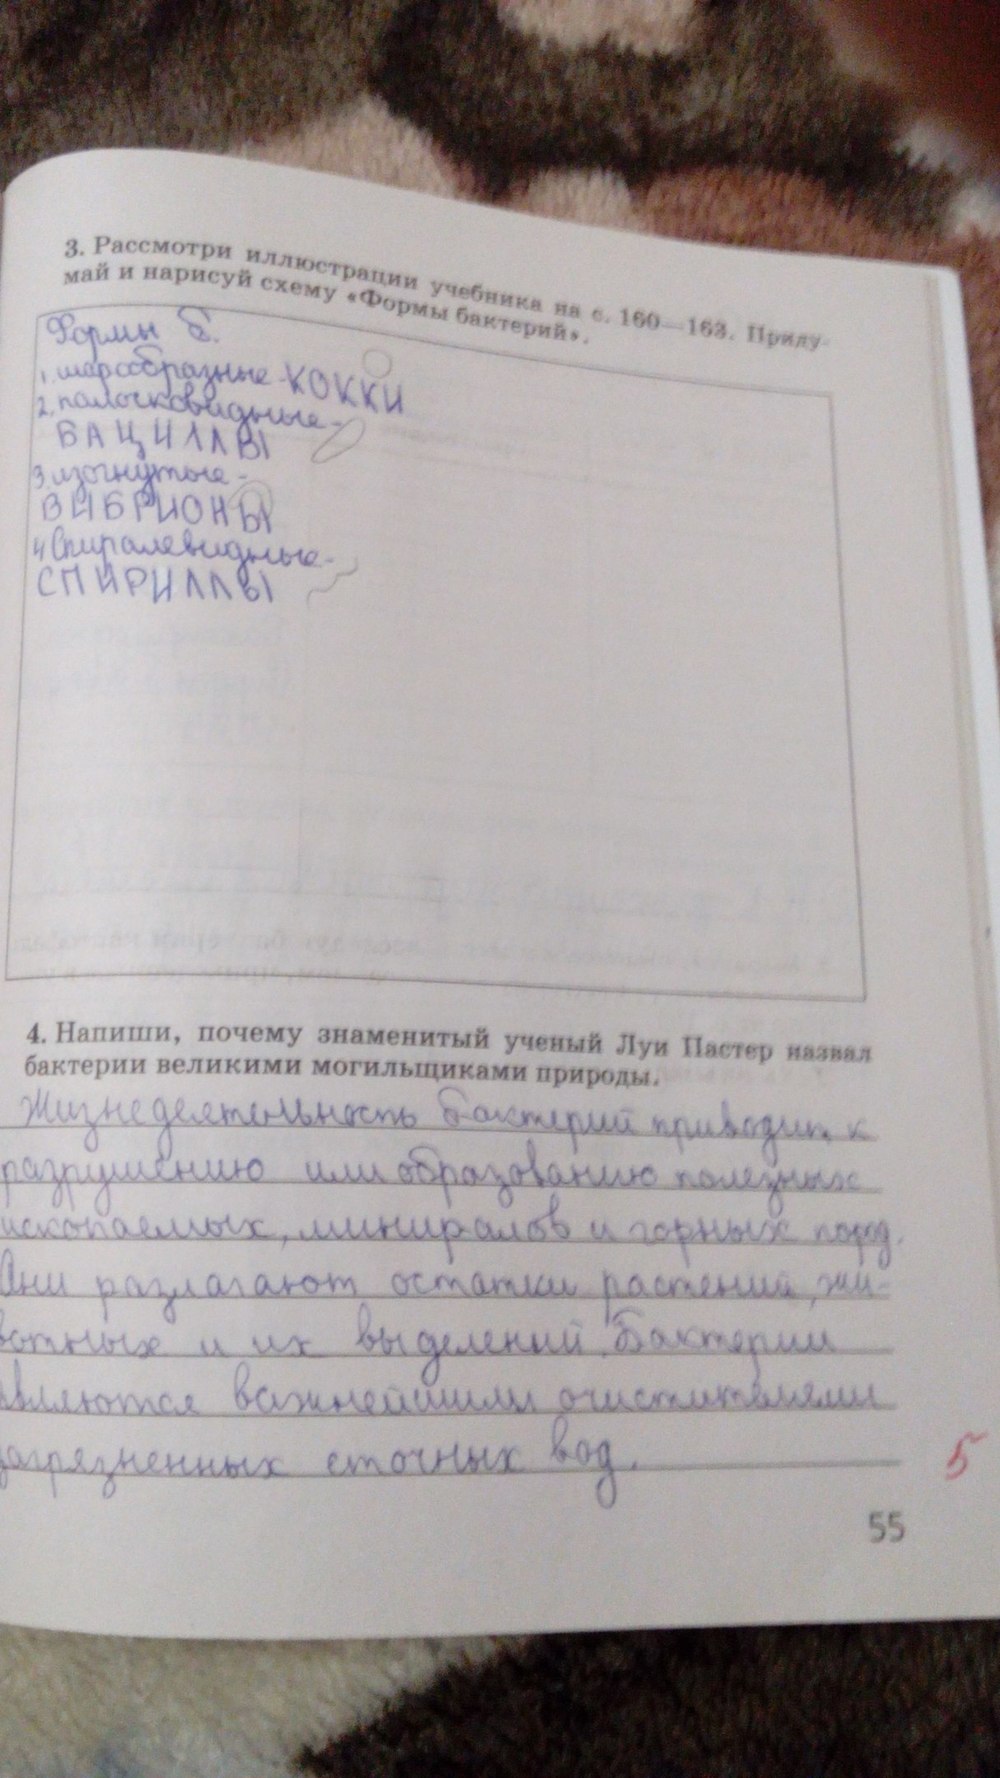 3. Рассмотри иллюстрации учебника на с. 160—163. Приду-
май и нарисуй схему «Формы бактерий».
Формы Б.
1. шарообразные - КОККИ
2. палочковидные -
БАЦИЛЛЫ
3 изогнутые -
ВИБРИОНЫ
4 Спиралевидные -
СПИРИЛЛЫ
4. Напиши, почему знаменитый ученый Луи Пастер назвал
бактерии великими могильщиками природы.
Жизнедеятельность бактерий приводит к
разрушению или образованию полезных
ископаемых, миниралов и горных пород.
Они разлагают остатки растений, жи-
вотных и их выделений. Бактерии
являются важнейшими очистителями
загрязненных сточных вод.
5
55